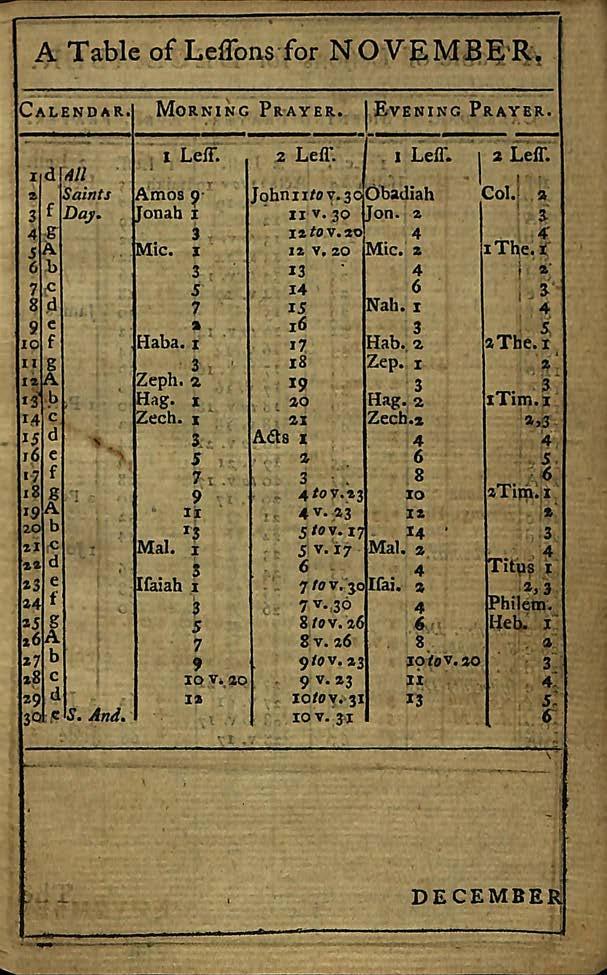 A Table of Leſſons for NOVEMBER.
CALENDAR. MORNING PRAYER. EVENING PRAYER.
1 Leſſ. 2 Leſſ. 1 Leſſ. 2 Leſſ.
1 d All
2 Saints Amos 9 John 11 to v. 30 Obadiah Col. 2
3 f Day. Jonah 1 11 v. 30 Jon. 2 3
4 g 3 12 to v. 20 4 4
5 A Mic. 1 12 v. 20 Mic. 2 1 The. 1
6 b 3 13 4 2
7 c 5 14 6 3
8 d 7 15 Nah. 1 4
9 e 2 16 3 5
10 f Haba. 1 17 Hab. 2 2 The. 1
11 g 3 18 Zep. 1 2
12 A Zeph. 2 19 3 3
13 b Hag. 1 20 Hag. 2 1 Tim. 1
14 c Zech. 1 21 Zech. 2 2,3
15 d 3 Acts 1 4 4
16 e 5 2 6 5
17 f 7 3 8 6
18 g 9 4 to v. 23 10 2 Tim. 1
19 A 11 4 v. 23 12 2
20 b 13 5 to v. 17 14 3
21 c Mal. 1 5 v. 17 Mal. 2 4
22 d 3 6 4 Titus 1
23 e Iſaiah 1 7 to v. 30 Iſai. 2 2, 3
24 f 3 7 v. 30 4 Philem.
25 g 5 8 to v. 26 6 Heb. 1
26 A 7 8 v. 26 8 2
27 b 9 9 to v. 23 10 to v. 20 3
28 c 10 v. 20 9 v. 23 11 4
29 d 12 10 to v. 31 13 5
30 e S. And. 10 v. 31 6
DECEMBER